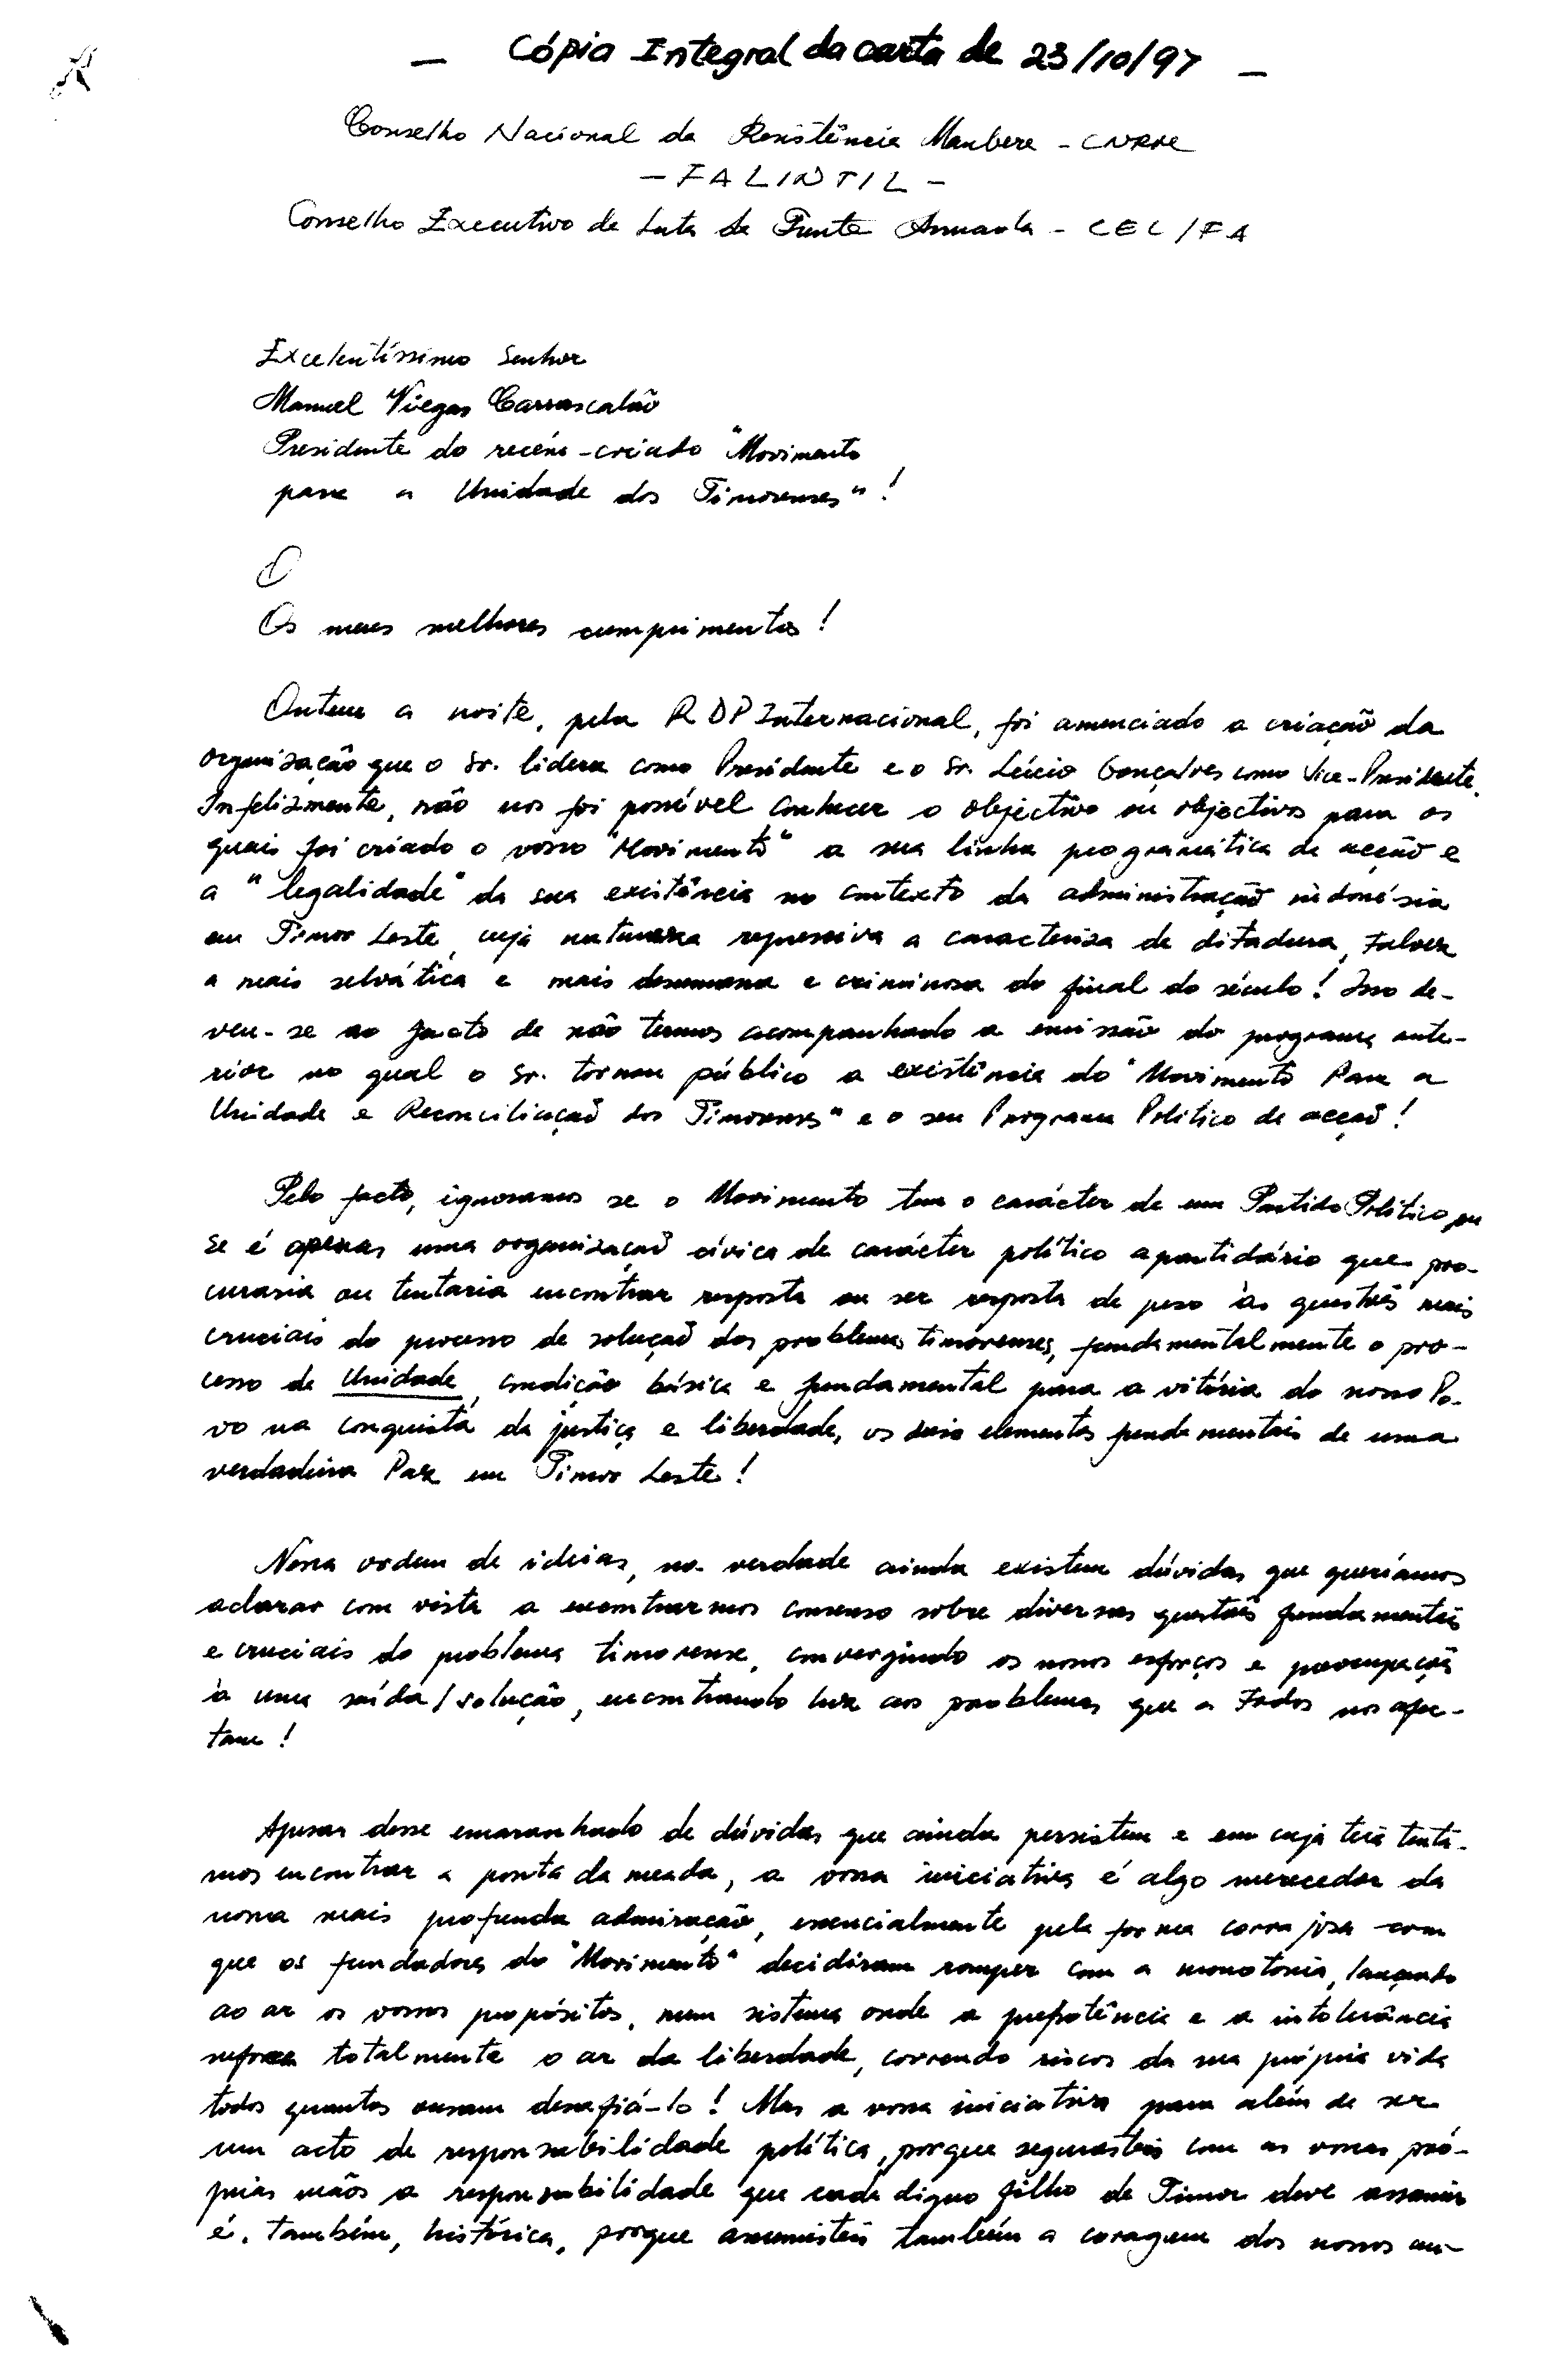 — Cópia Integral da carta de 23/10/97 —
Conselho Nacional da Resistência Maubere - CNRM
- FALINTIL -
Conselho Executivo de Luta da Frente Armada - CEL/FA
Excelentíssimo Senhor
Manuel Viegas Carrascalão
Presidente do recém-criado "Movimento
para a Unidade dos Timorenses"!
Os meus melhores cumprimentos!
Ontem a noite, pela RDP Internacional, foi anunciado a criação da
organização que o Sr. lidera como Presidente e o Sr. Lúcio Gonçalves como Vice-Presidente.
Infelizmente, não nos foi possível conhecer o objectivo ou objectivos para os
quais foi criado o vosso "Movimento" a sua linha programática de acção e
a "legalidade" da sua existência no contexto da administração indonésia
em Timor Leste, cuja natureza repressiva a caracteriza de ditadura, talvez
a mais selvática e mais desumana e criminosa do final do século! Isso de-
veu-se ao facto de não termos acompanhado a emissão do programa ante-
rior no qual o Sr. tornou público a existência do "Movimento Para a
Unidade e Reconciliação dos Timorenses" e o seu Programa Político de acção!
Pelo facto, ignoramos se o Movimento tem o carácter de um Partido Político ou
se é apenas uma organização cívica de carácter político apartidário que pro-
curaria ou tentaria encontrar resposta ou ser resposta de peso às questões mais
cruciais do processo de solução dos problemas timorenses, fundamentalmente o pro-
cesso de Unidade, condição básica e fundamental para a vitória do nosso Po-
vo na conquista da justiça e liberdade, os dois elementos fundamentais de uma
verdadeira Paz em Timor Leste!
Nessa ordem de ideias, na verdade ainda existem dúvidas que queríamos
aclarar com vista a encontrarmos consenso sobre diversas questões fundamentais
e cruciais do problema timorense, convergindo os nossos esforços e preocupações
à uma saída/solução, encontrando luz aos problemas que a todos nos afec-
tam!
Apesar desse emaranhado de dúvidas que ainda persistem e em cuja teia tenta-
mos encontrar a ponta da meada, a vossa iniciativa é algo merecedor da
nossa mais profunda admiração, essencialmente pela forma corrajosa com
que os fundadores do "Movimento" decidiram romper com a monotonia, lançando
ao ar os vossos propósitos, num sistema onde a prepotência e a intolerância
totalmente o ar da liberdade, correndo riscos da sua própria vida
todos quantos ousam desafiá-lo! Mas a vossa iniciativa para além de ser
um acto de responsabilidade política, porque segurasteis com as vossas pró-
prias mãos a responsabilidade que cada digno filho de Timor deve assumir
é, também, histórica, porque assumisteis também a coragem dos nossos an-